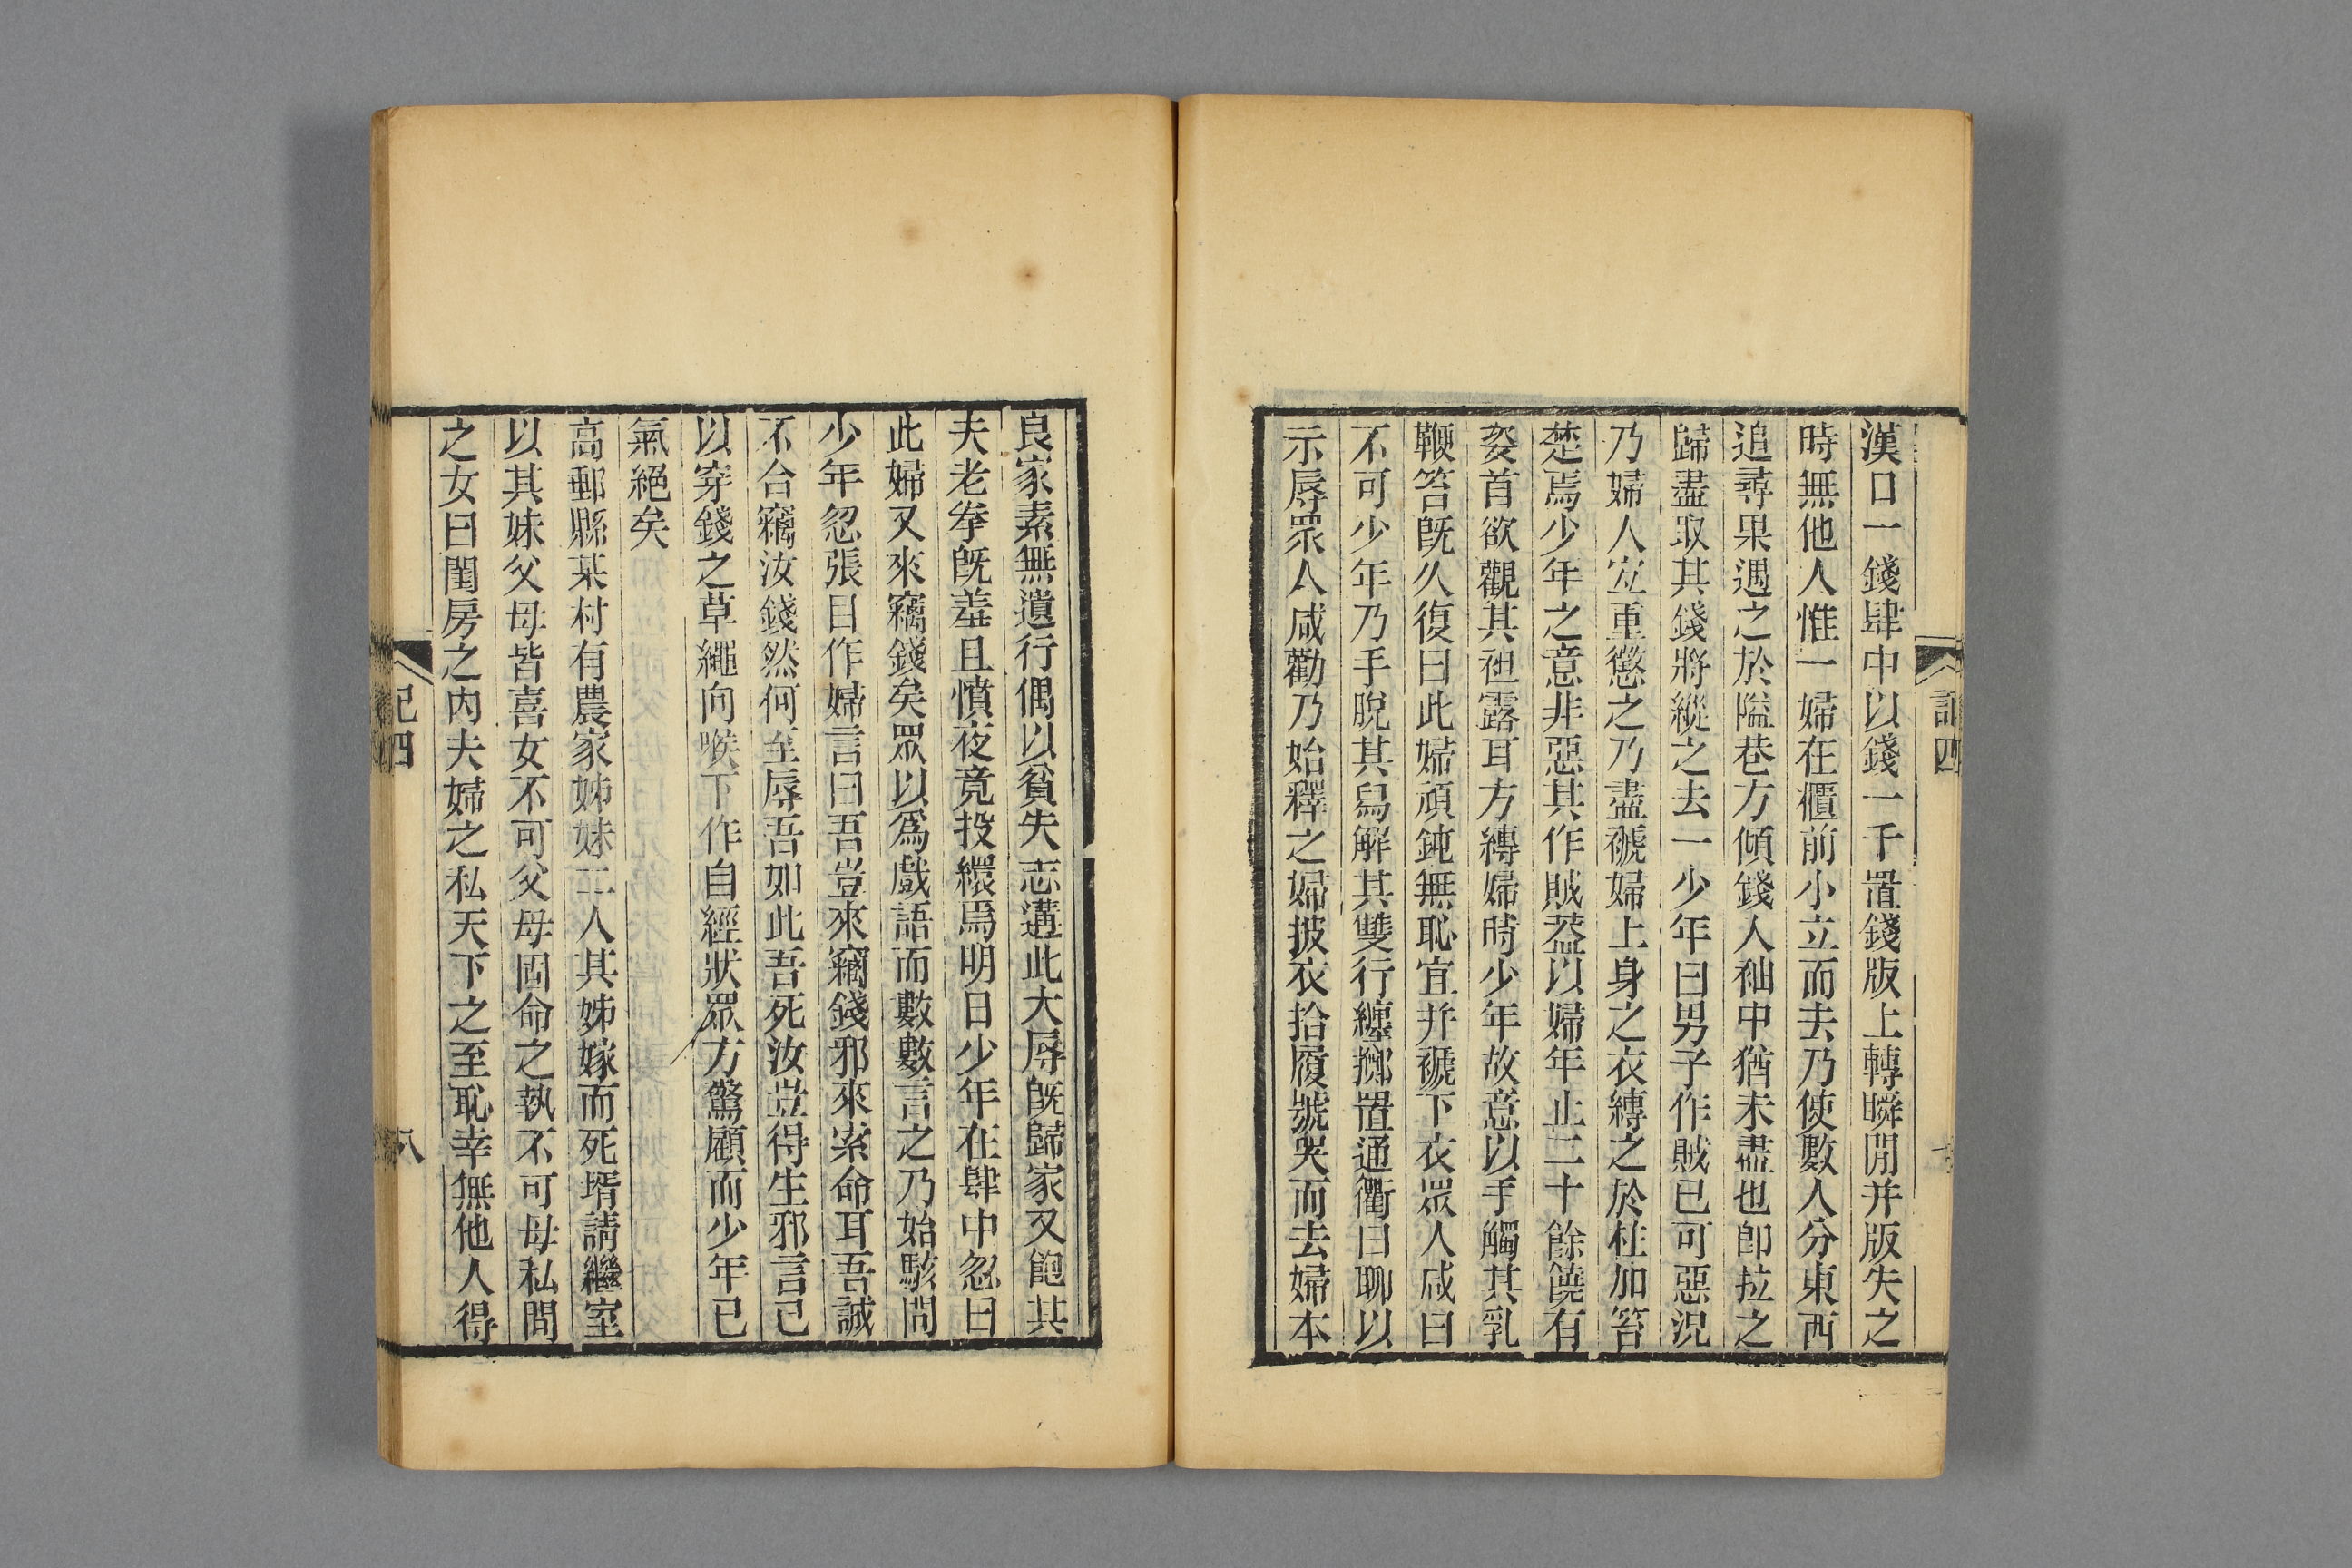 漢口一錢肆中以錢一千置錢版上轉瞬閒并版失之
時無他人惟一婦在櫃前小立而去乃使數人分東西
追尋果遇之於隘巷方傾錢人袖中猶未盡也卽拉之
歸盡取其錢將縱之去一少年曰男子作賊已可惡況
乃婦人宜重懲之乃盡褫婦上身之衣縛之於柱加笞
楚焉少年之意非惡其作賊葢以婦年止二十餘饒有
姿首欲觀其袒露耳方縛婦時少年故意以手觸其乳
鞭笞旣久復曰此婦頑鈍無恥宜并褫下衣眾人咸曰
不可少年乃手脫其舄解其雙行纏擲置通衢曰聊以
示辱眾人咸勸乃始釋之婦披衣拾履號哭而去婦本
記四
良家素無遺行偶以貧失志遘此大辱旣歸家又飽其
夫老拳旣羞且憤夜竟投繯焉明日少年在肆中忽曰
此婦又來竊錢矣眾以爲戲語而數數言之乃始駭問
少年忽張目作婦言曰吾豈來竊錢邪來索命耳吾誠
不合竊汝錢然何至辱吾如此吾死汝豈得生邪言已
以穿錢之草繩向喉下作自經狀眾方驚顧而少年已
氣絕矣
高郵縣某村有農家姊妹二人其姊嫁而死壻請繼室
以其妹父母皆喜女不可父母固命之執不可母私問
之女曰閨房之內夫婦之私天下之至恥幸無他人得
記四
八